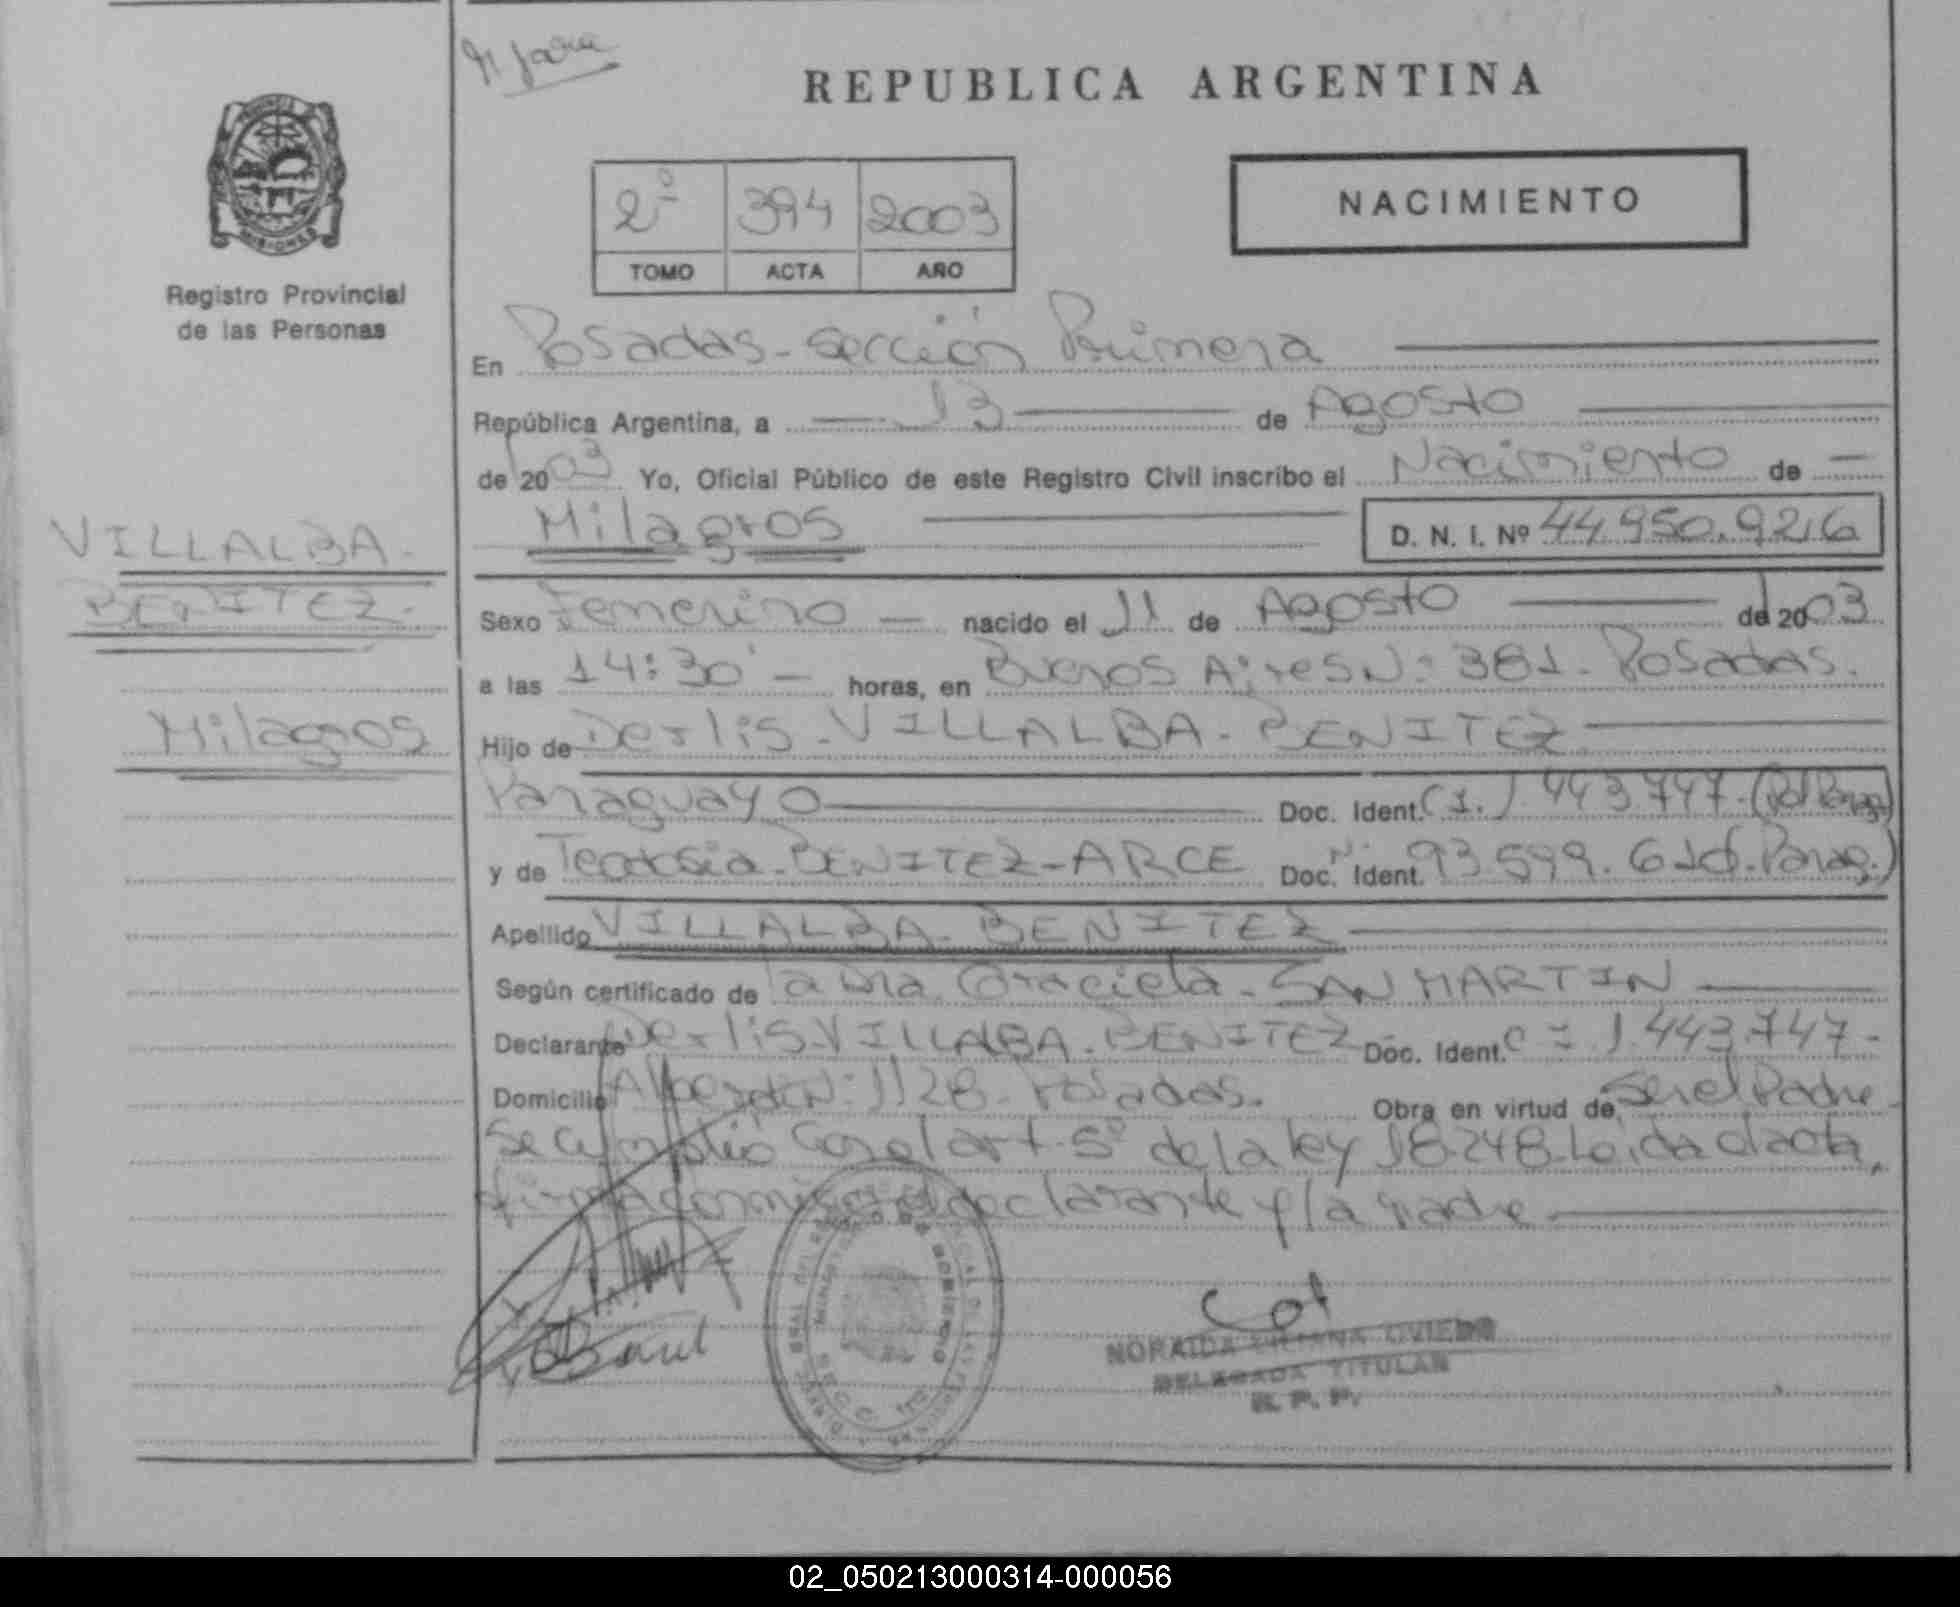 REPUBLICA ARGENTINA
2º 394 2003
TOMO ACTA AÑO
NACIMIENTO
MISIONES
Registro Provincial
de las Personas
VILLALBA.
BENITEZ.
Milagros
En Posadas - sección Primera
República Argentina, a 13 de Agosto
de 2003 Yo, Oficial Público de este Registro Civil inscribo el Nacimiento de
Milagros D. N. I. Nº 44.950.926
Sexo Femenino nacido el 11 de Agosto de 2003
a las 14:30 horas, en Buenos Aires N: 381. Posadas.
Hijo de Derlis - VILLALBA - BENITEZ
Paraguayo Doc. Ident. 1.443.747
y de BENITEZ - ARCE Doc. Ident. 93.599.
Apellido VILLALBA - BENITEZ
Según certificado de la Dra. Graciela - SAN MARTIN
Declarante Derlis VILLALBA - BENITEZ Doc. Ident. 1.443.747-
Domicilio Alberdi N: 1128 - Posadas. Obra en virtud de Ser el Padre
Se cumplió con el art. 5º de la ley 18.248. Leída el acta,
firma conmigo el declarante y la madre
NORAIDA LILIANA OVIEDO
DELEGADA TITULAR
R. P. P.
02_050213000314-000056